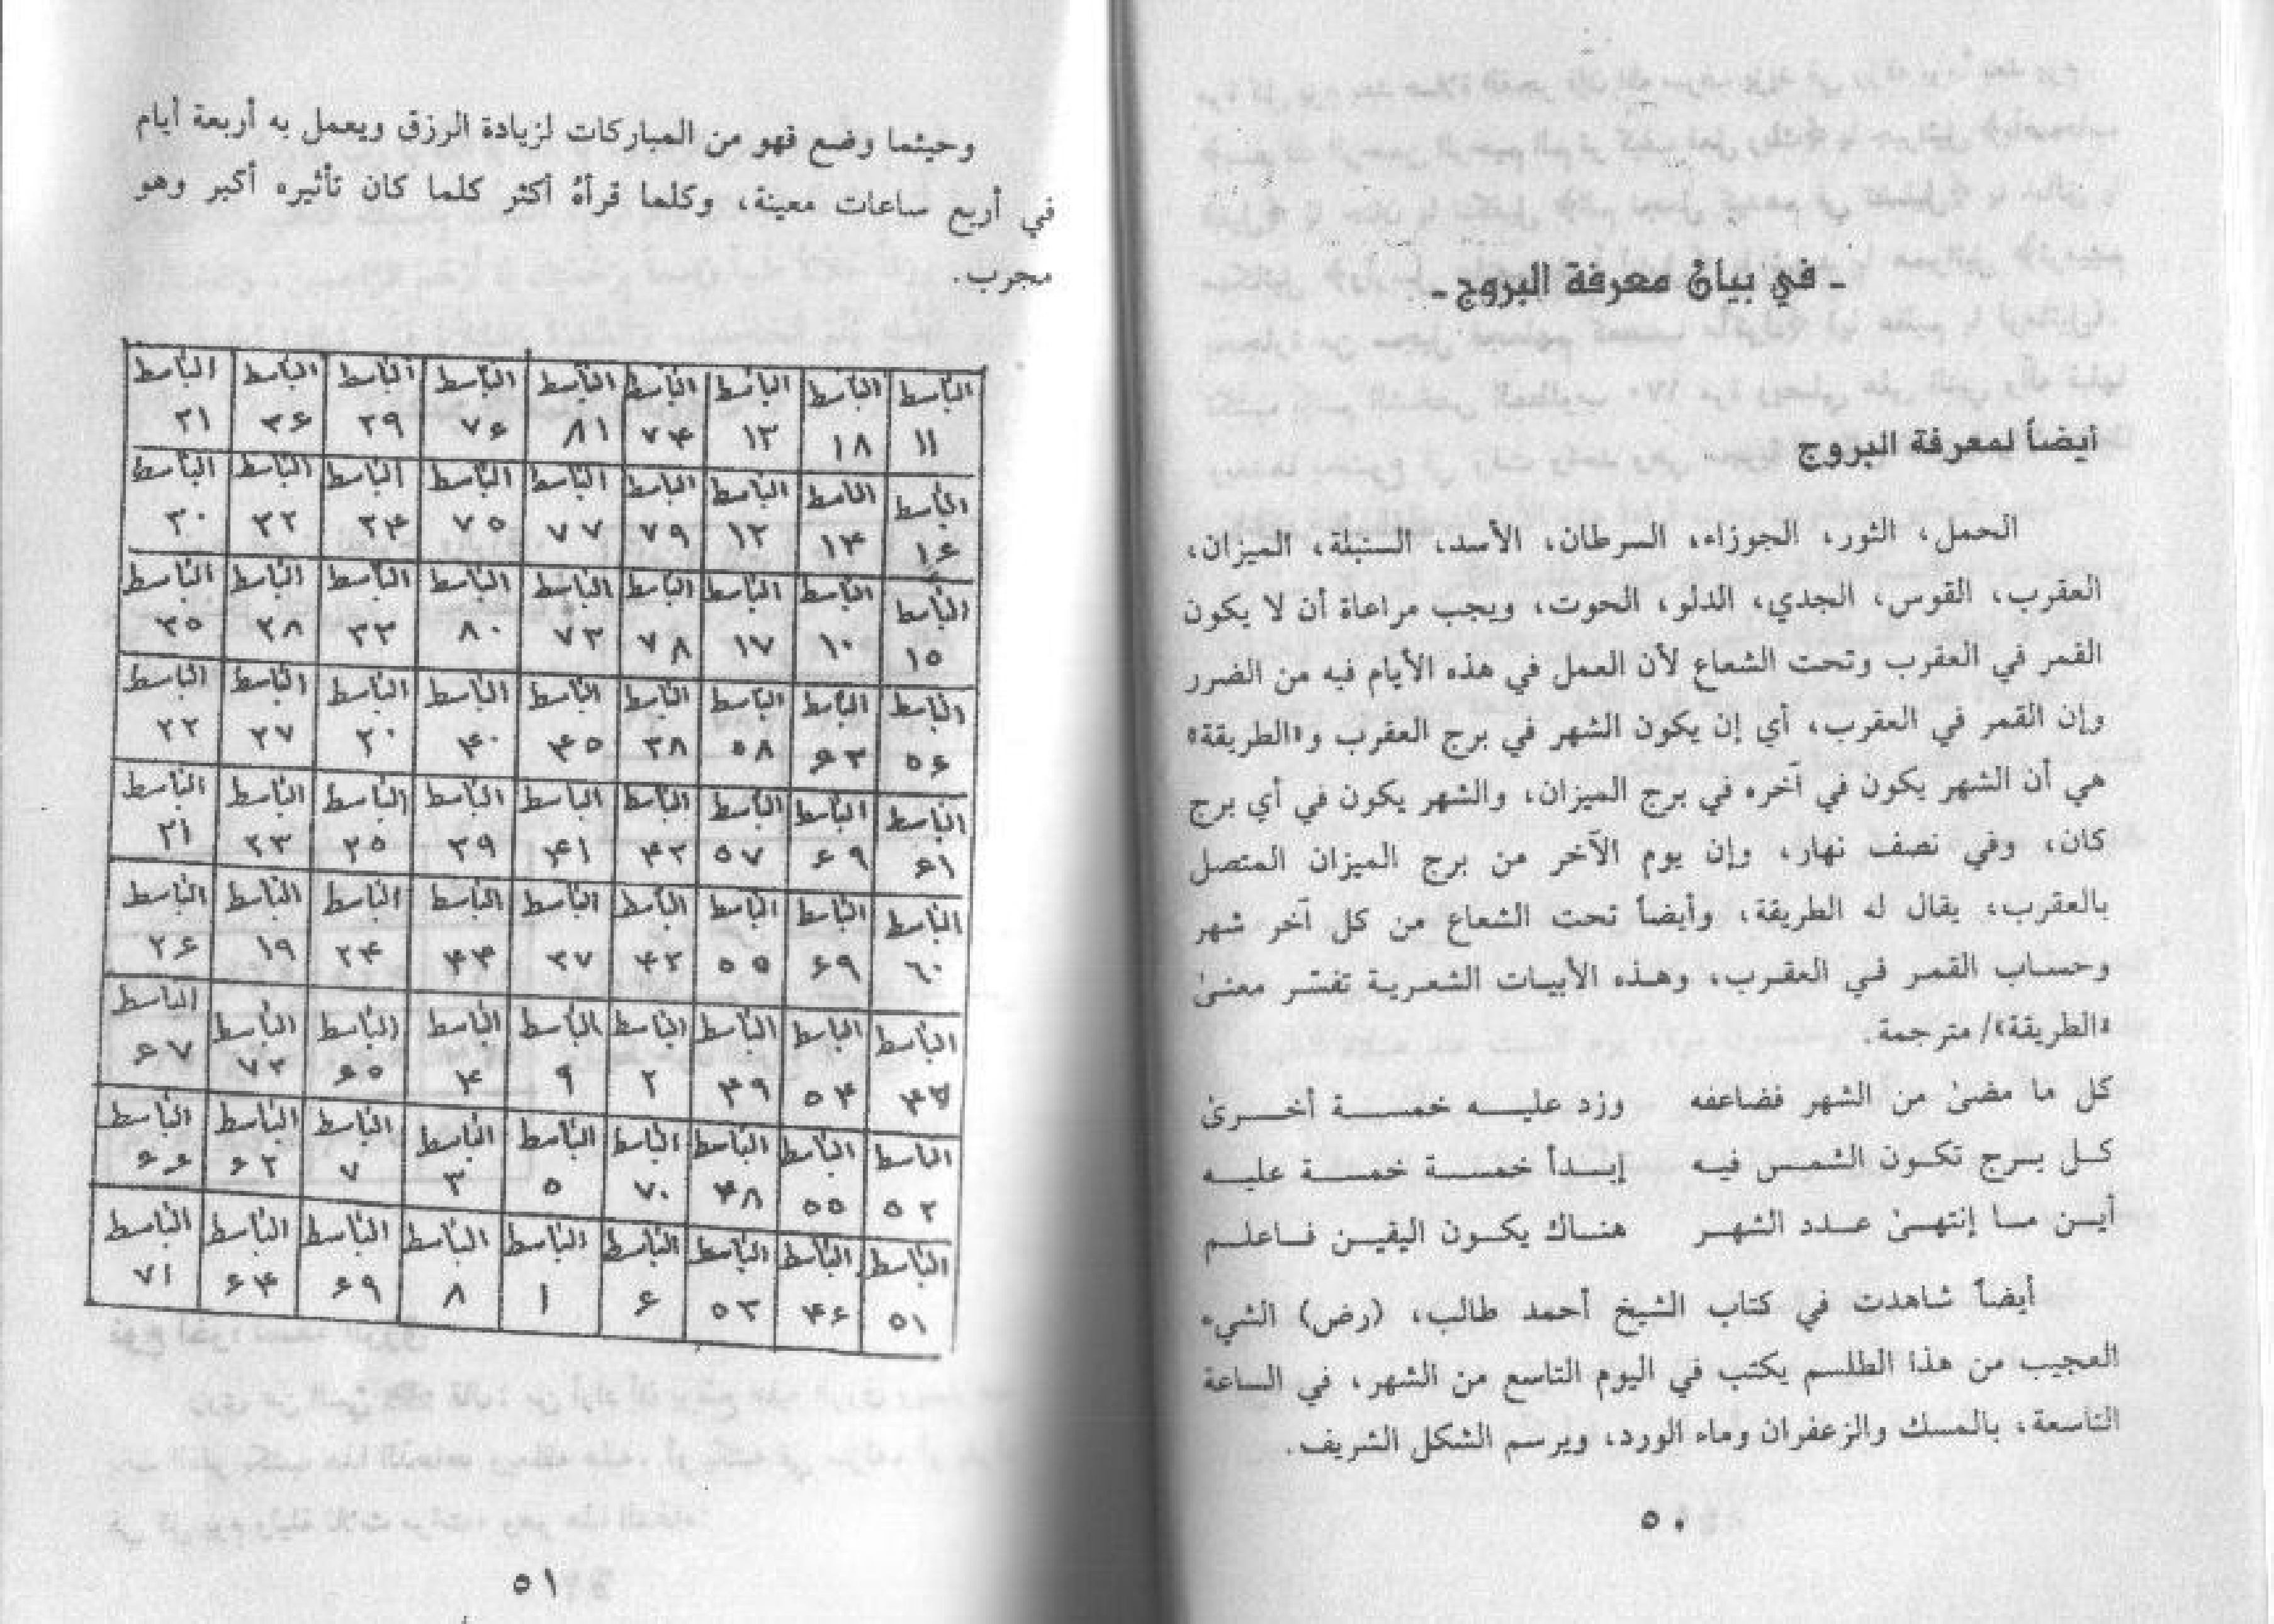 - في بيان معرفة البروج -
أيضاً لمعرفة البروج
الحمل، الثور، الجوزاء، السرطان، الأسد، السنبلة، الميزان،
العقرب، القوس، الجدي، الدلو، الحوت، ويجب مراعاة أن لا يكون
القمر في العقرب وتحت الشعاع لأن العمل في هذه الأيام فيه من الضرر
وإن القمر في العقرب، أي إن يكون الشهر في برج العقرب و«الطريقة»
هي أن الشهر يكون في آخره في برج الميزان، والشهر يكون في أي برج
كان، وفي نصف نهار، وإن يوم الآخر من برج الميزان المتصل
بالعقرب، يقال له الطريقة، وأيضاً تحت الشعاع من كل آخر شهر
وحساب القمر في العقرب، وهذه الأبيات الشعرية تفسّر معنىٰ
«الطريقة»/ مترجمة.
كل ما مضىٰ من الشهر فضاعفه وزد عليه خمسة أخرىٰ
كل برج تكون الشمس فيه إبدأ خمسة خمسة عليه
أين ما إنتهىٰ عدد الشهر هناك يكون اليقين فاعلم
أيضاً شاهدت في كتاب الشيخ أحمد طالب، (رض) الشيء
العجيب من هذا الطلسم يكتب في اليوم التاسع من الشهر، في الساعة
التاسعة، بالمسك والزعفران وماء الورد، ويرسم الشكل الشريف.
٥٠
وحيثما وضع فهو من المباركات لزيادة الرزق ويعمل به أربعة أيام
في أربع ساعات معينة، وكلما قرأهُ أكثر كلما كان تأثيره أكبر وهو
مجرب.
الباسط الباسط الباسط الباسط الباسط الباسط الباسط الباسط الباسط
١١ ١٨ ١٣ ٧۴ ٨١ ٧۶ ٢٩ ٣۶ ٣١
الباسط الباسط الباسط الباسط الباسط الباسط الباسط الباسط الباسط
١۶ ١۴ ١٢ ٧٩ ٧٧ ٧٥ ٣۴ ٣٢ ٣٠
الباسط الباسط الباسط الباسط الباسط الباسط الباسط الباسط الباسط
١٥ ١٠ ١٧ ٧٨ ٧٣ ٨٠ ٣٣ ٢٨ ٣٥
الباسط الباسط الباسط الباسط الباسط الباسط الباسط الباسط الباسط
٥۶ ۶٣ ٥٨ ٣٨ ۴٥ ۴٠ ٢٠ ٢٧ ٢٢
الباسط الباسط الباسط الباسط الباسط الباسط الباسط الباسط الباسط
۶١ ۶٩ ٥٧ ۴٣ ۴١ ٣٩ ٢٥ ٢٣ ٢١
الباسط الباسط الباسط الباسط الباسط الباسط الباسط الباسط الباسط
٦٠ ۶٩ ٥٥ ۴٢ ٣٧ ۴۴ ٢۴ ١٩ ٢۶
الباسط الباسط الباسط الباسط الباسط الباسط الباسط الباسط الباسط
٥۴ ۴٩ ٢ ٩ ۴ ۶٥ ٧٢ ۶٧
الباسط الباسط الباسط الباسط الباسط الباسط الباسط الباسط الباسط
٥٢ ٥٥ ۴٨ ٧٠ ٥ ٣ ٧ ۶٢ ۶۶
الباسط الباسط الباسط الباسط الباسط الباسط الباسط الباسط الباسط
٥١ ۴۶ ٥٣ ۶ ١ ٨ ۶٩ ۶۴ ٧١
٥١